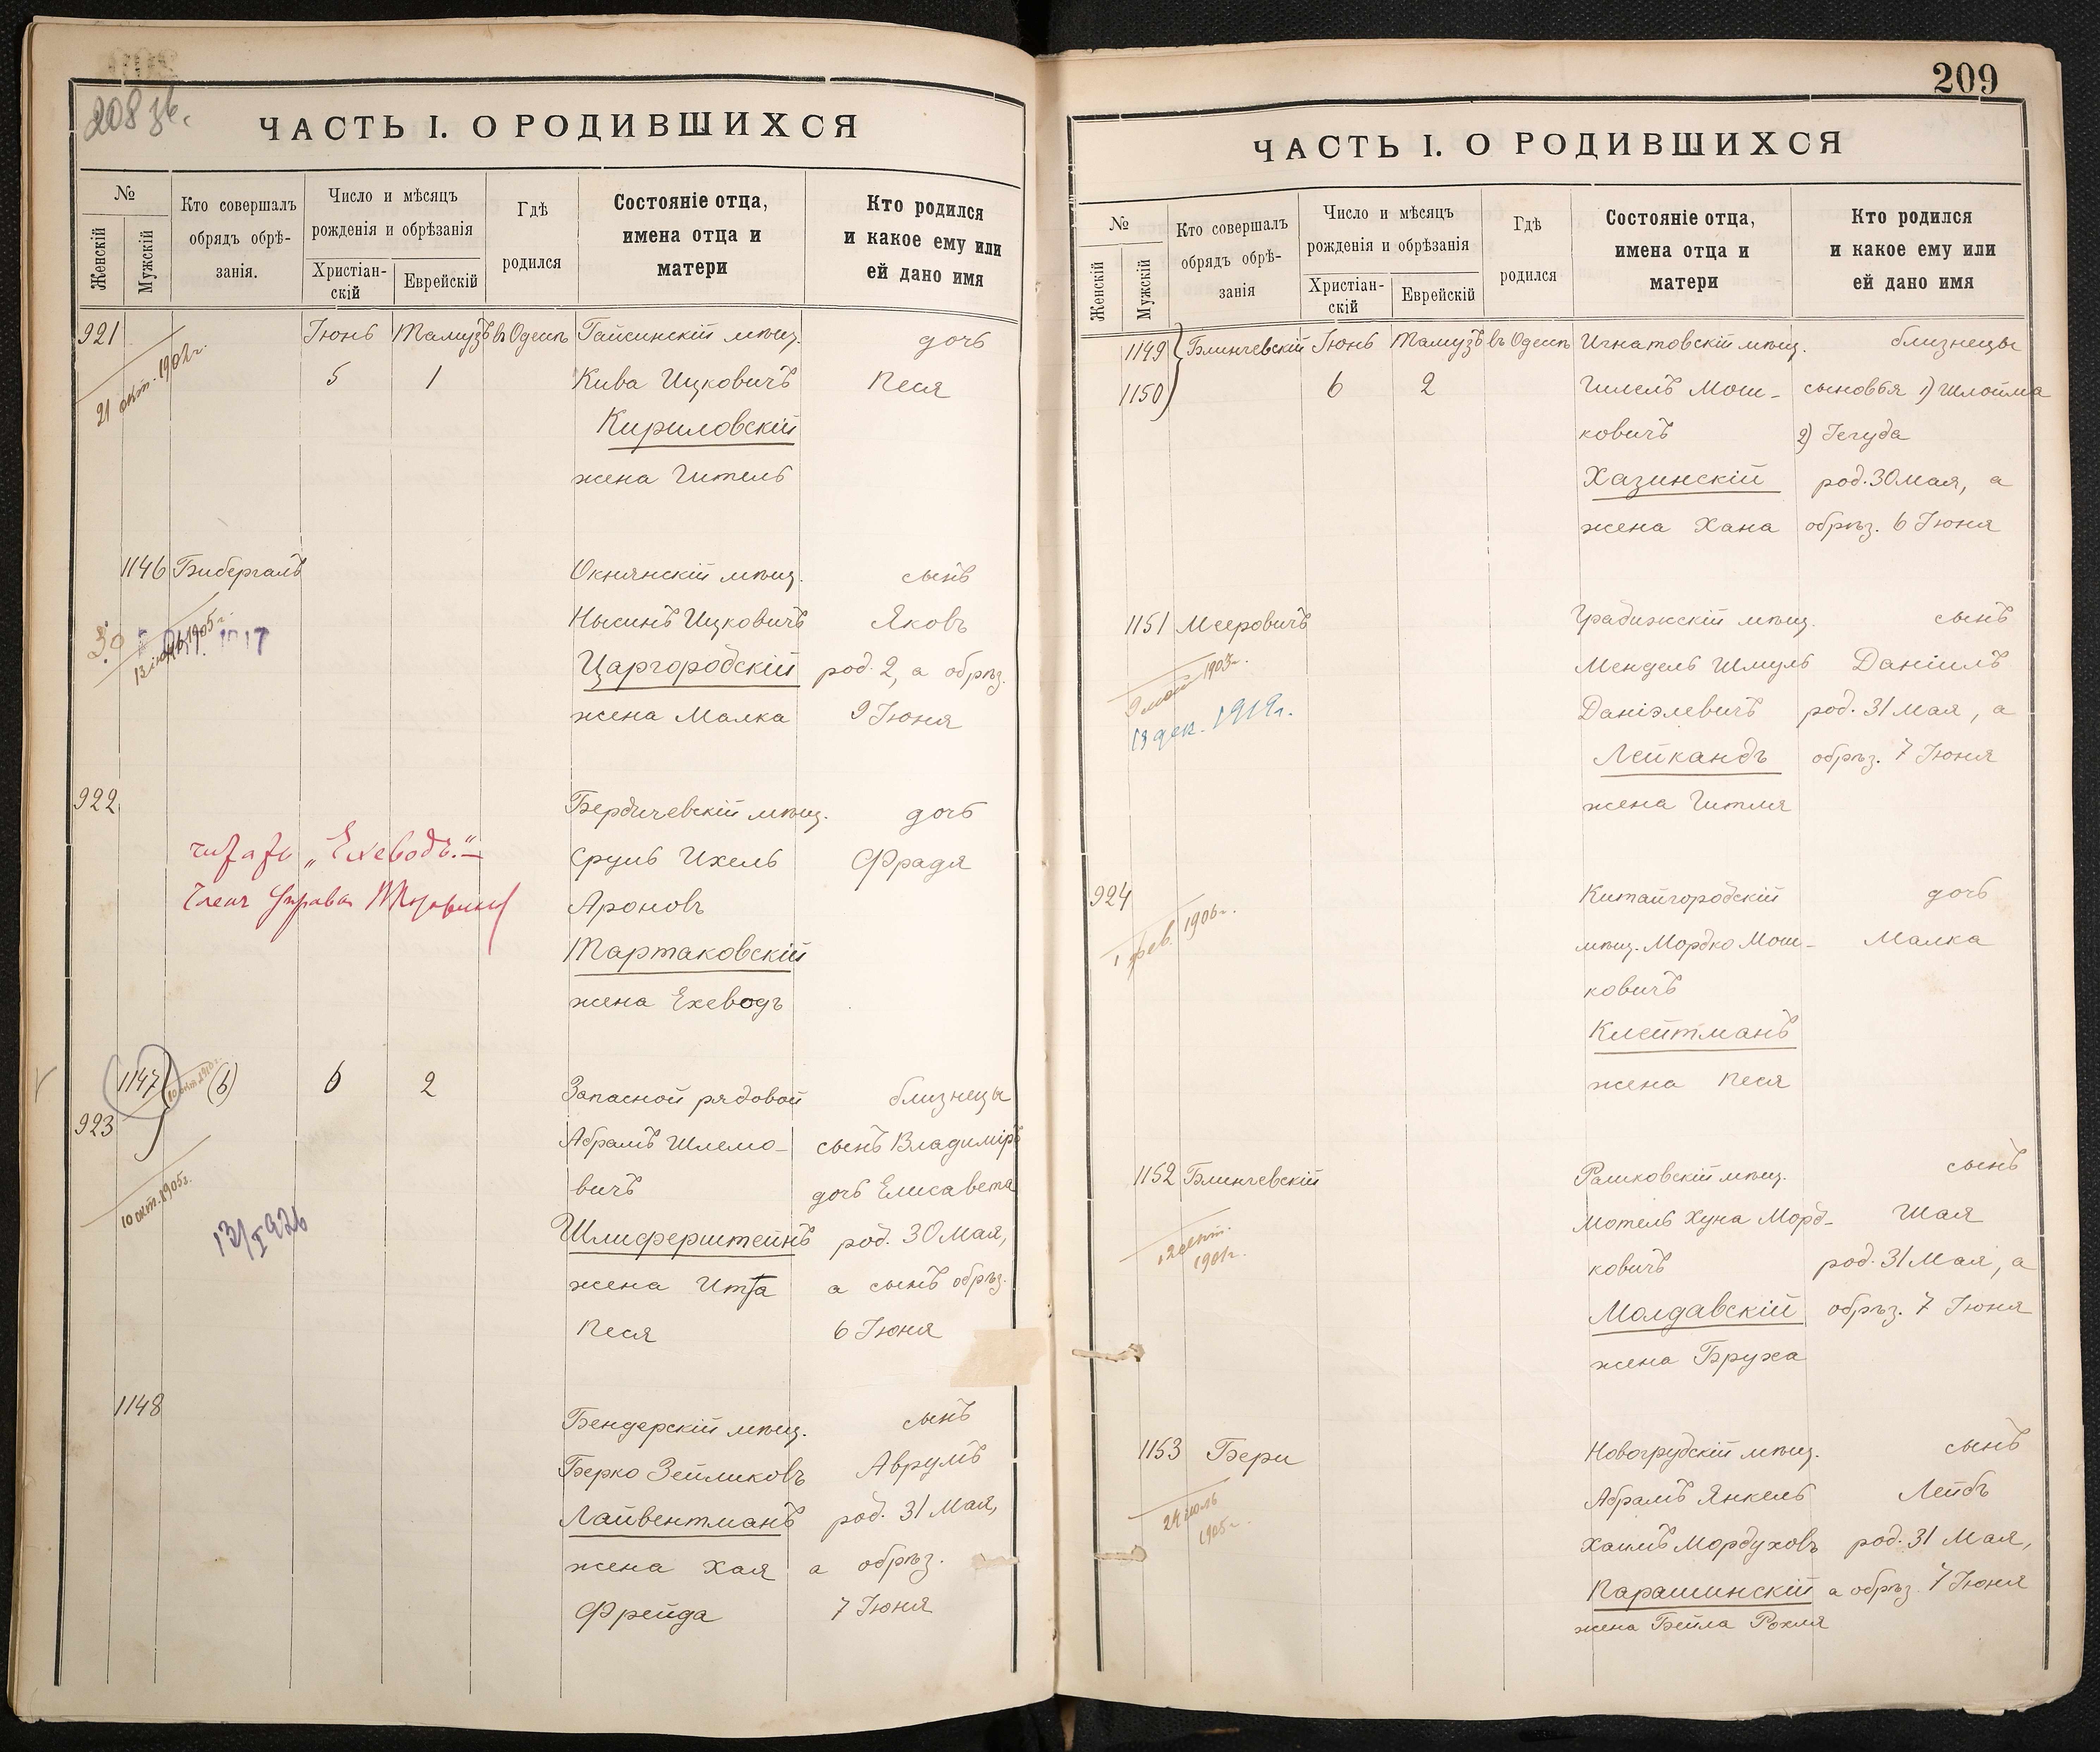 208 зв.
ЧАСТЬ I. О РОДИВШИХСЯ
№
Женскій
Мужскій
Кто совершалъ
обрядъ обрѣ-
занія.
Число и мѣсяцъ
рожденія и обрѣзанія
Христіан-
скій
Еврейскій
Гдѣ
родился
Состояніе отца,
имена отца и
матери
Кто родился
и какое ему или
ей дано имя
921 Іюнь Тамузъ въ Одессѣ Гайсинскій мѣщ. дочь
21 окт. 1902г.
5 1 Кива Ицковичъ Песя
Кириловскій
жена Гитель
1146 Бибергалъ Окнянскій мѣщ. сынъ
Нысинъ Ицковичъ Яковъ
1905г.
1917
Царгородскій род. 2, а обрѣз.
жена Малка 9 Іюня
922 Бердичевскій мѣщ. дочь
читать „Ехеводъ."–
Сруль Ихель Фрадя
Членъ Управы
Ароновъ
Тартаковскій
жена Ехеводъ
1147 (6) 6 2 Запасной рядовой близнецы
10 окт. 1910г.
923 Абрамъ Шлемо- сынъ Владиміръ
10 окт. 1905г.
вичъ дочь Елисавета
13/I 926
Шлиферштейнъ род. 30 Мая,
жена Итта а сынъ обрѣз.
Песя 6 Іюня
1148 Бендерскій мѣщ. сынъ
Берко Зейликовъ Аврумъ
Лайвентманъ род. 31 Мая,
жена Хая а обрѣз.
Фрейда 7 Іюня
209
ЧАСТЬ I. О РОДИВШИХСЯ
№
Женскій
Мужскій
Кто совершалъ
обрядъ обрѣ-
занія
Число и мѣсяцъ
рожденія и обрѣзанія
Христіан-
скій
Еврейскій
Гдѣ
родился
Состояніе отца,
имена отца и
матери
Кто родился
и какое ему или
ей дано имя
1149 Блинчевскій Іюнь Тамузъ въ Одессѣ Игнатовскій мѣщ. близнецы
1150 6 2 Гилель Мош- сыновья 1) Шлойма
ковичъ 2) Іегуда
Хазинскій род. 30 Мая, а
жена Хана обрѣз. 6 Іюня
1151 Мееровичъ Градижскій мѣщ. сынъ
1903г.
Мендель Шмуль Даніилъ
13 дек. 1919г.
Даніэлевичъ род. 31 Мая, а
Лейкандъ обрѣз. 7 Іюня
жена Гитля
924 Китайгородскій дочь
1 фев. 1906г.
мѣщ. Мордко Мош- Малка
ковичъ
Клейтманъ
жена Песя
1152 Блинчевскій Рашковскій мѣщ. сынъ
Мотель Хуна Морд- Шая
ковичъ род. 31 Мая, а
Молдавскій обрѣз. 7 Іюня
жена Бруха
1153 Бери Новогрудскій мѣщ. сынъ
24 іюль
1905г.
Абрамъ Янкель Лейбъ
Хаимъ Мордуховъ род. 31 Мая,
Парашинскій а обрѣз. 7 Іюня
жена Бейла Рохля